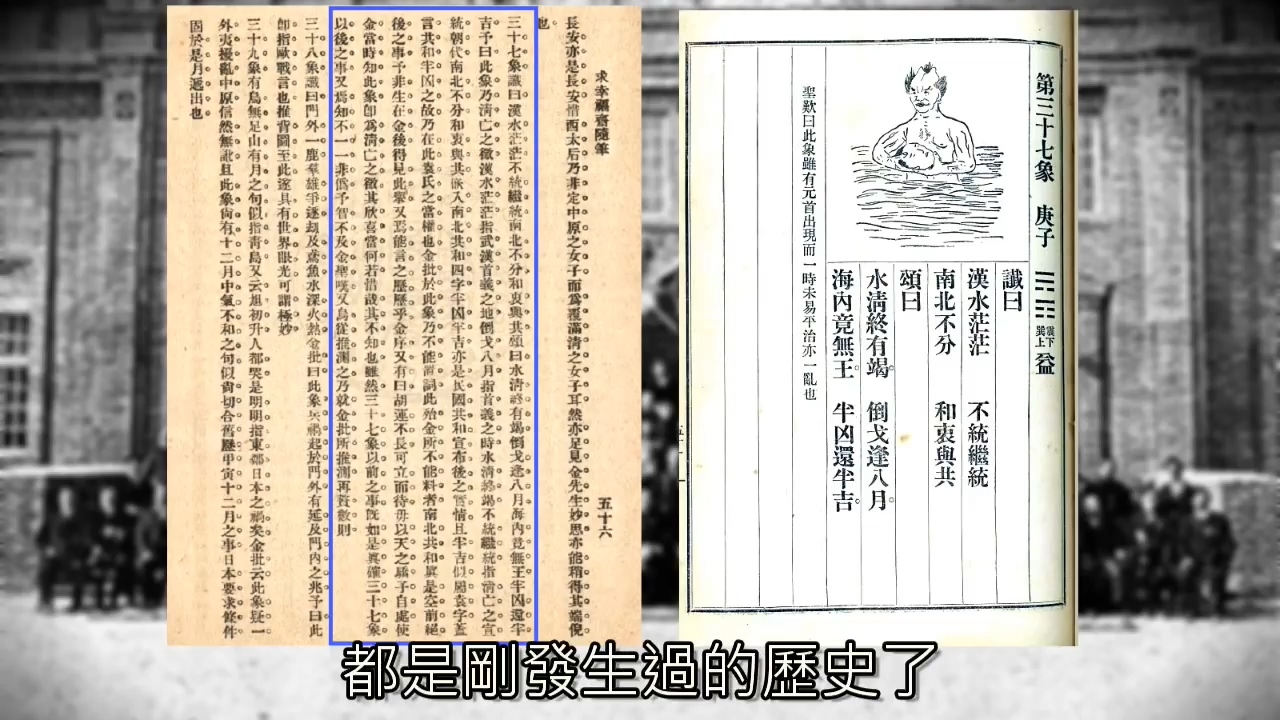 長安亦是長安惜西太后乃非定中原之女子而為覆滿清之女子耳然亦足見金先生妙思亦能猜得其端倪
也
求幸福齋隨筆
五十六
三十七象讖曰漢水茫茫不統繼統南北不分和衷與共頌曰水清終有竭倒戈逢八月海內竟無王半凶還半
吉予曰此象乃清亡之徵漢水茫茫指武漢首義之地倒戈八月指首義之時水清終竭不統繼統指清亡之宣
統朝代南北不分和衷與共嵌入南北共和四字半凶半吉亦是民國共和宣布後之實情且半吉似屬袁字蓋
言共和半凶之故乃在此袁氏之當權也金批於此象乃不能置詞此殆金所不能料者南北共和眞是空前絕
後之事予非生在金後得見此舉又焉能言之歷歷乎金序又有曰胡運不長可立而待毋以天之驕子自處使
金當時知此象卽為清亡之徵其欣喜當何若惜哉其不知也雖然三十七象以前之事旣如是眞確三十七象
以後之事又焉知不一一非僞予智不及金聖嘆又烏從推測之乃就金批所推測再贅數則
三十八象讖曰門外一鹿羣雄爭逐刼及鳶魚水深火熱金批曰此象兵禍起於門外有延及門內之兆予曰此
卽指歐戰言也推背圖至此遂具有世界眼光可謂極妙
三十九象有鳥無足山有月之句似指靑島又云旭初升人都哭是明明指東鄰日本之禍矣金批云此象疑一
外夷擾亂中原信然無訛且此象尙有十二月中氣不和之句似尙切合舊曆甲寅十二月之事日本要求條件
固於是月遞出也
第三十七象 庚子 ䷩ 震下 巽上 益
讖曰
漢水茫茫 不統繼統
南北不分 和衷與共
頌曰
水清終有竭 倒戈逢八月
海內竟無王 半凶還半吉
聖歎曰此象雖有元首出現而一時未易平治亦一亂也
都是剛發生過的歷史了